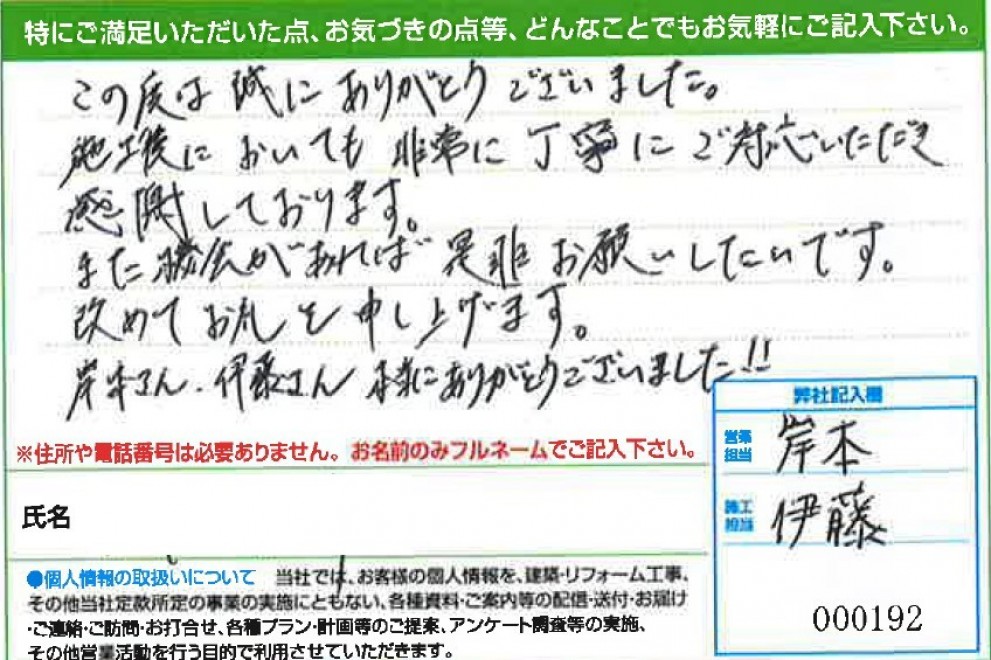 特にご満足いただいた点、お気づきの点等、どんなことでもお気軽にご記入下さい。
この度は誠にありがとうございました。
施工後においても非常に丁寧にご対応いただき
感謝しております。
また機会があれば是非お願いしたいです。
改めてお礼を申し上げます。
岸本さん、伊藤さん 本当にありがとうございました!!
※住所や電話番号は必要ありません。お名前のみフルネームでご記入下さい。
氏名
弊社記入欄
営業担当 岸本
施工担当 伊藤
000192
●個人情報の取扱いについて 当社では、お客様の個人情報を、建築・リフォーム工事、
その他当社定款所定の事業の実施にともない、各種資料・ご案内等の配信・送付・お届け
・ご連絡・ご訪問・お打合せ、各種プラン・計画等のご提案、アンケート調査等の実施、
その他営業活動を行う目的で利用させていただきます。